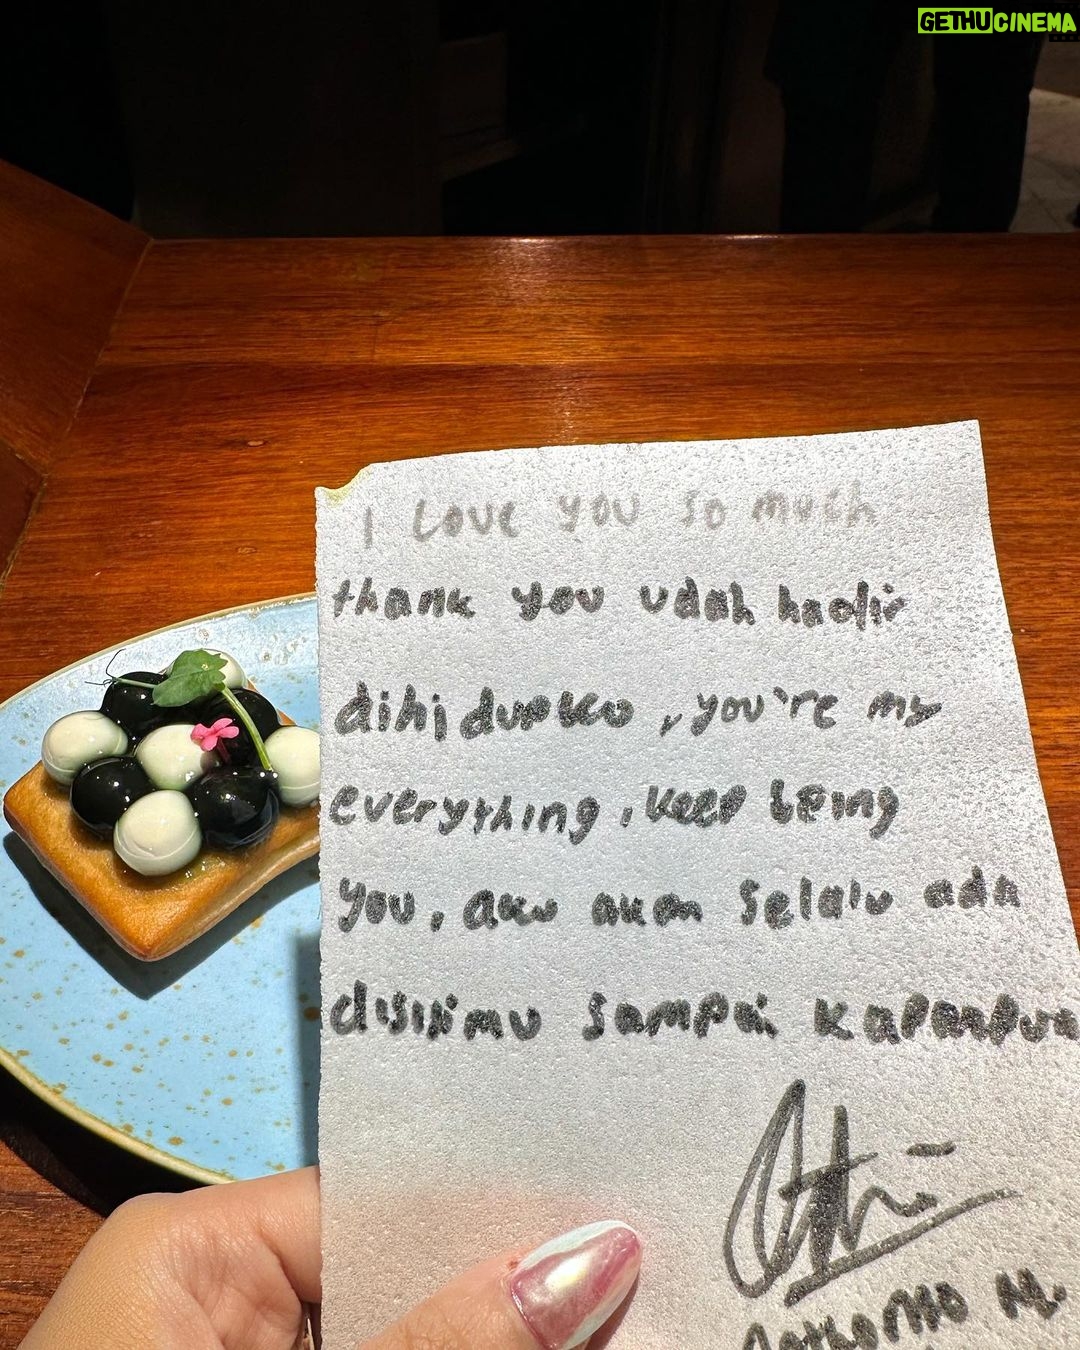 GETHUCINEMA
I Love you so much
thank you udah hadir
dihidupku, you're my
everything, keep being
you, aku akan selalu ada
disisimu sampai kapanpun